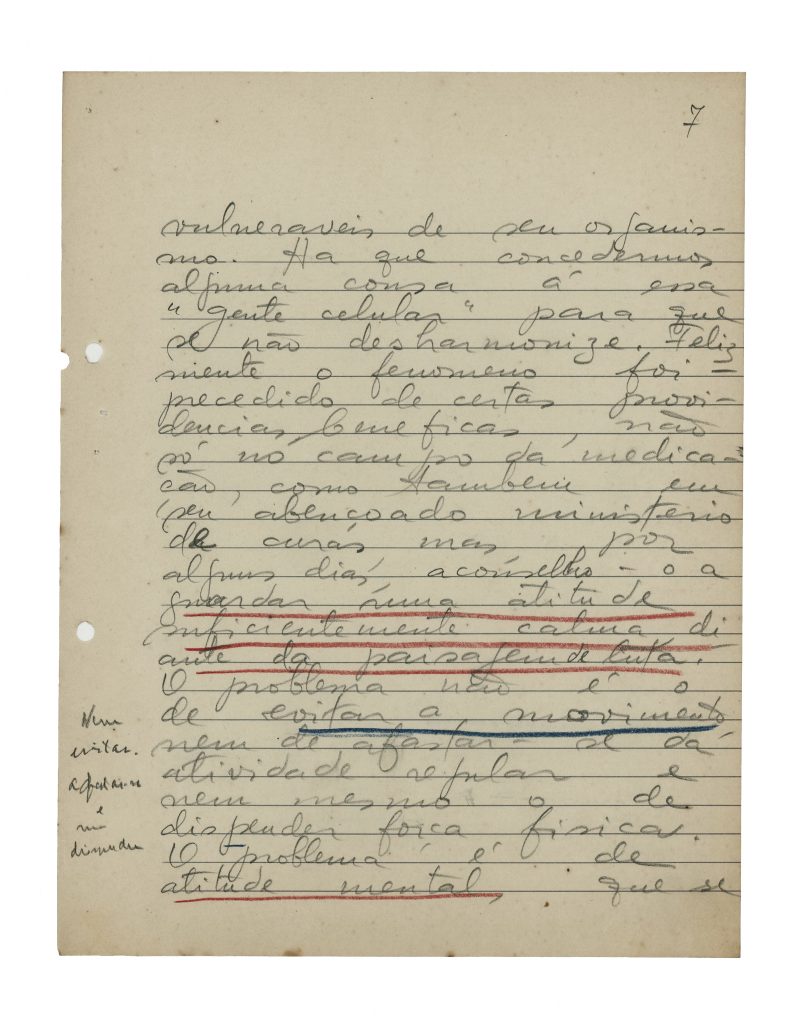 7
vulneraveis de seu organis-
mo. Ha que concedermos
alguma cousa á essa
"gente celular" para que
se não desharmonize. Feliz
mente o fenomeno foi -
precedido de certas provi-
dencias beneficas, não
só no campo da medica-
cão, como tambem em
seu abencoado ministerio
de curás mas por
alguns dias, aconselho-o a
guardar uma atitude
suficientemente calma di
ante da paisagem de luta.
O problema não é o
de evitar a movimento
nem de afastar-se da
atividade regular e
nem mesmo o de
dispender forca fisica.
O problema é de
atitude mental, que se
Nem
evitar.
afastar-se
e
dispender